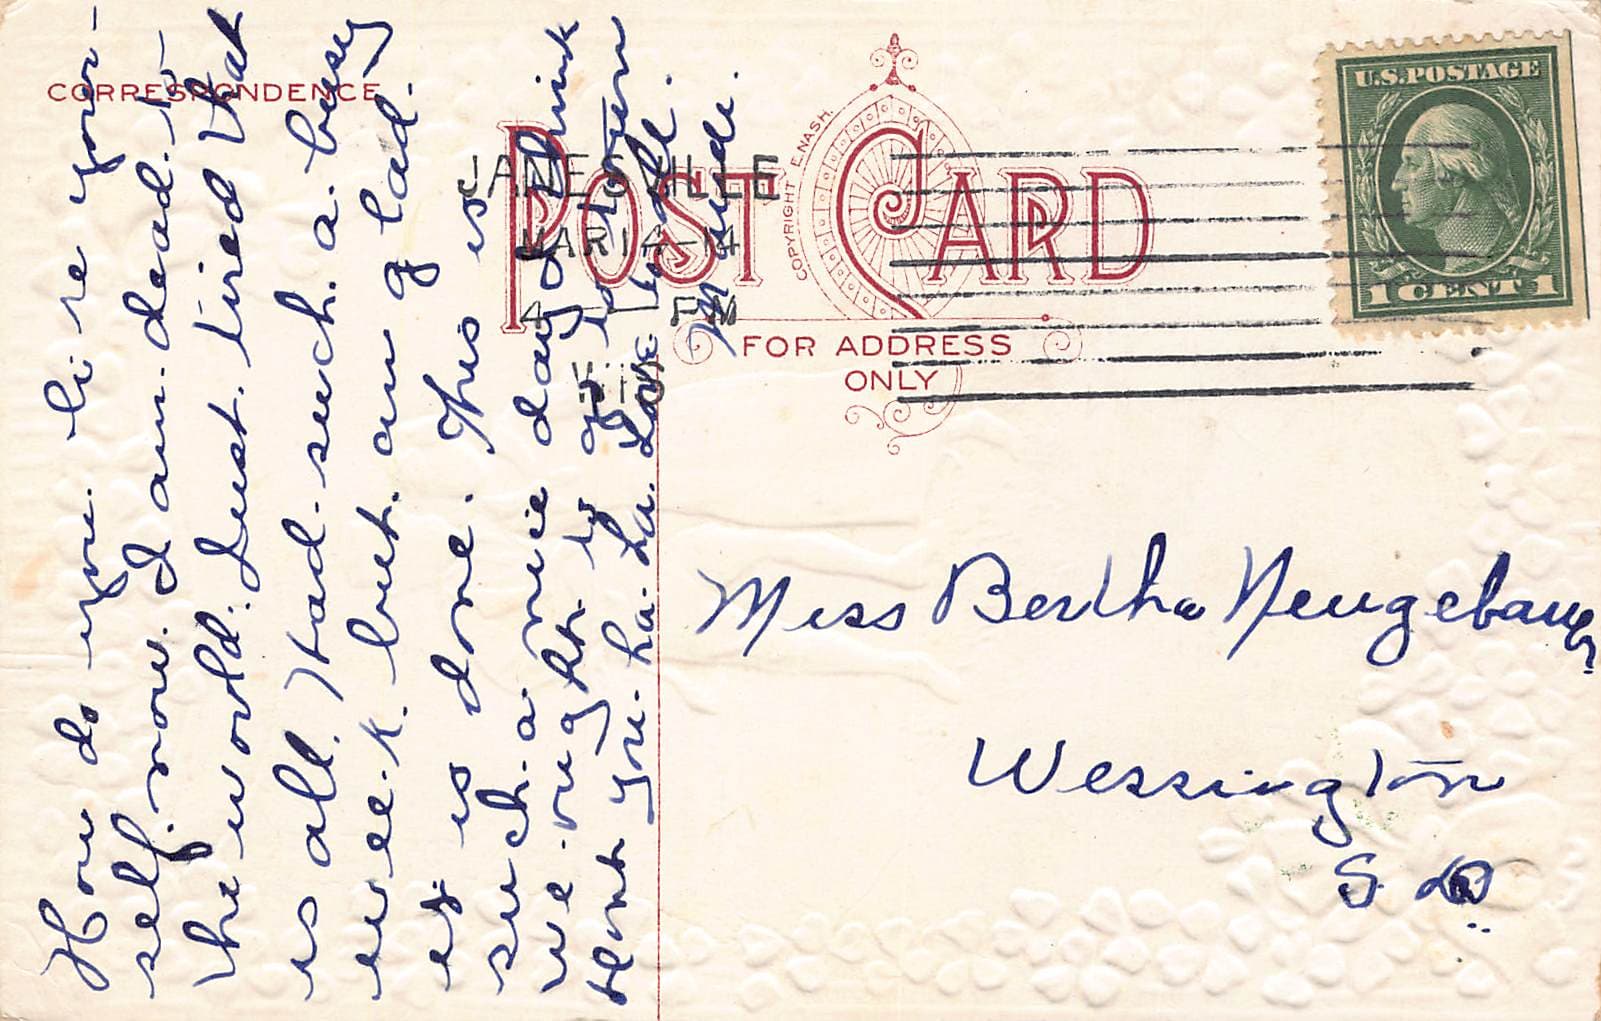 CORRESPONDENCE
POST CARD
COPYRIGHT E. NASH.
FOR ADDRESS
ONLY
U.S. POSTAGE
1 CENT 1
JANESVILLE
MAR 14-14
4 - PM
WIS
How do you. li ke your-
self. now. I am. dead. to
the world. Just. tired that
is all. Had. such. a. busy
wee.k. but. am g lad.
is done. This is
such. a nice day I think
we. ought to go to town
dont you. ha. ha. Love to all.
Maude.
Miss Bertha Neugebauer
Wessington
S. D.